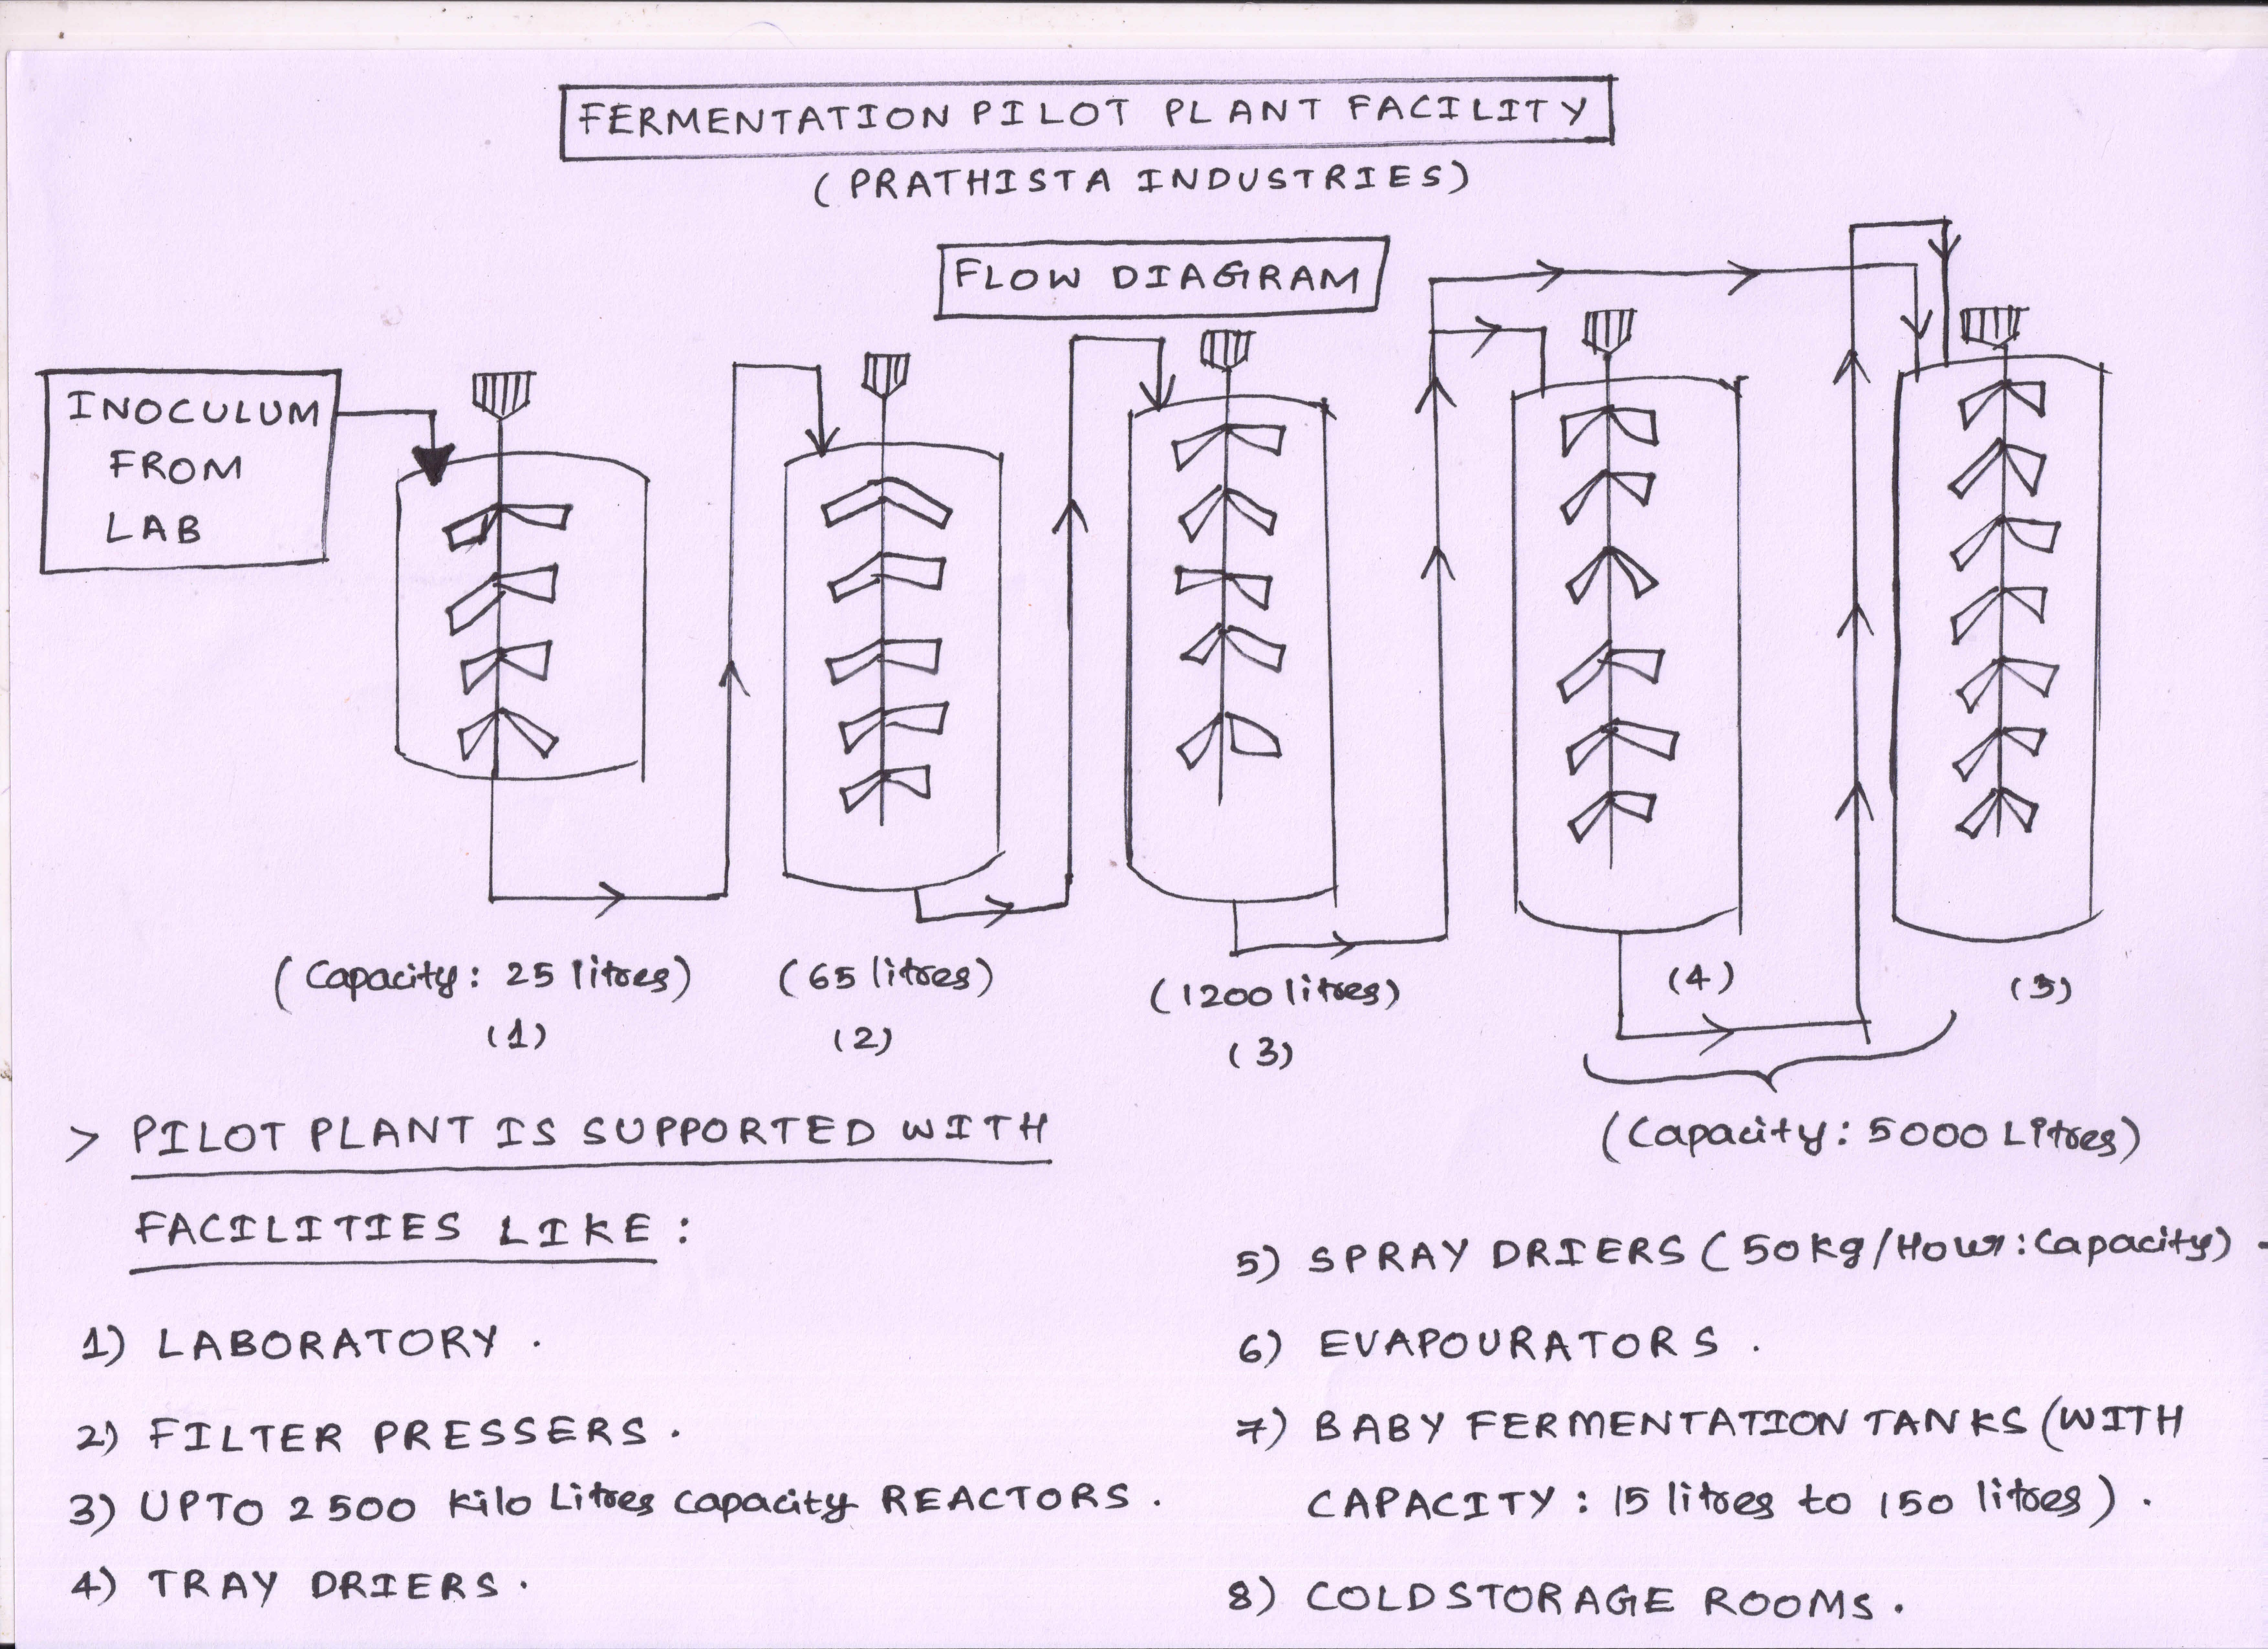 FERMENTATION PILOT PLANT FACILITY
(PRATHISTA INDUSTRIES)
FLOW DIAGRAM
INOCULUM
FROM
LAB
(Capacity: 25 litres)
(1)
(65 litres)
(2)
(1200 litres)
(3)
(4)
(5)
(Capacity: 5000 Litres)
> PILOT PLANT IS SUPPORTED WITH
FACILITIES LIKE:
1) LABORATORY.
2) FILTER PRESSERS.
3) UPTO 2500 Kilo Litres capacity REACTORS.
4) TRAY DRIERS.
5) SPRAY DRIERS (50kg/Hour: Capacity)-
6) EVAPOURATORS.
7) BABY FERMENTATION TANKS (WITH
CAPACITY: 15 litres to 150 litres).
8) COLD STORAGE ROOMS.